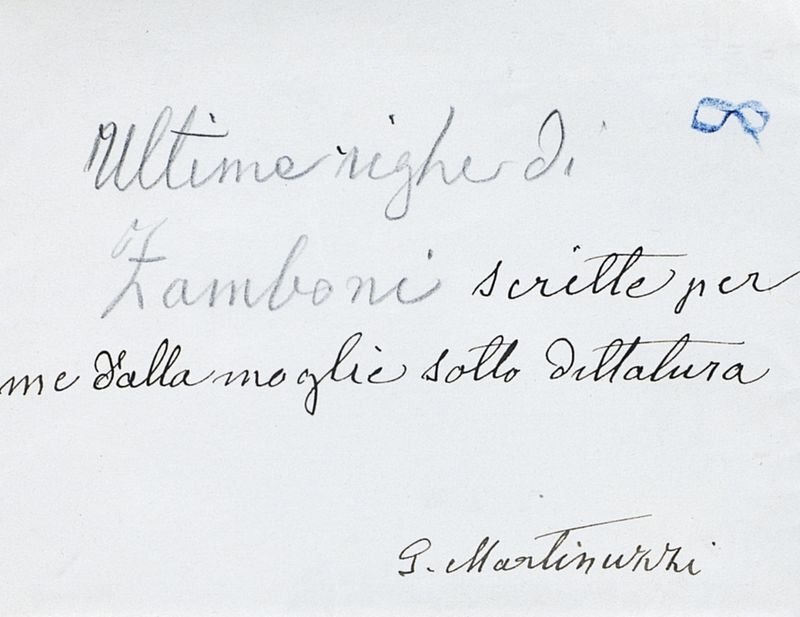 Ultime righe di
Zamboni scritte per
me dalla moglie sotto dittatura
G. Martinuzzi